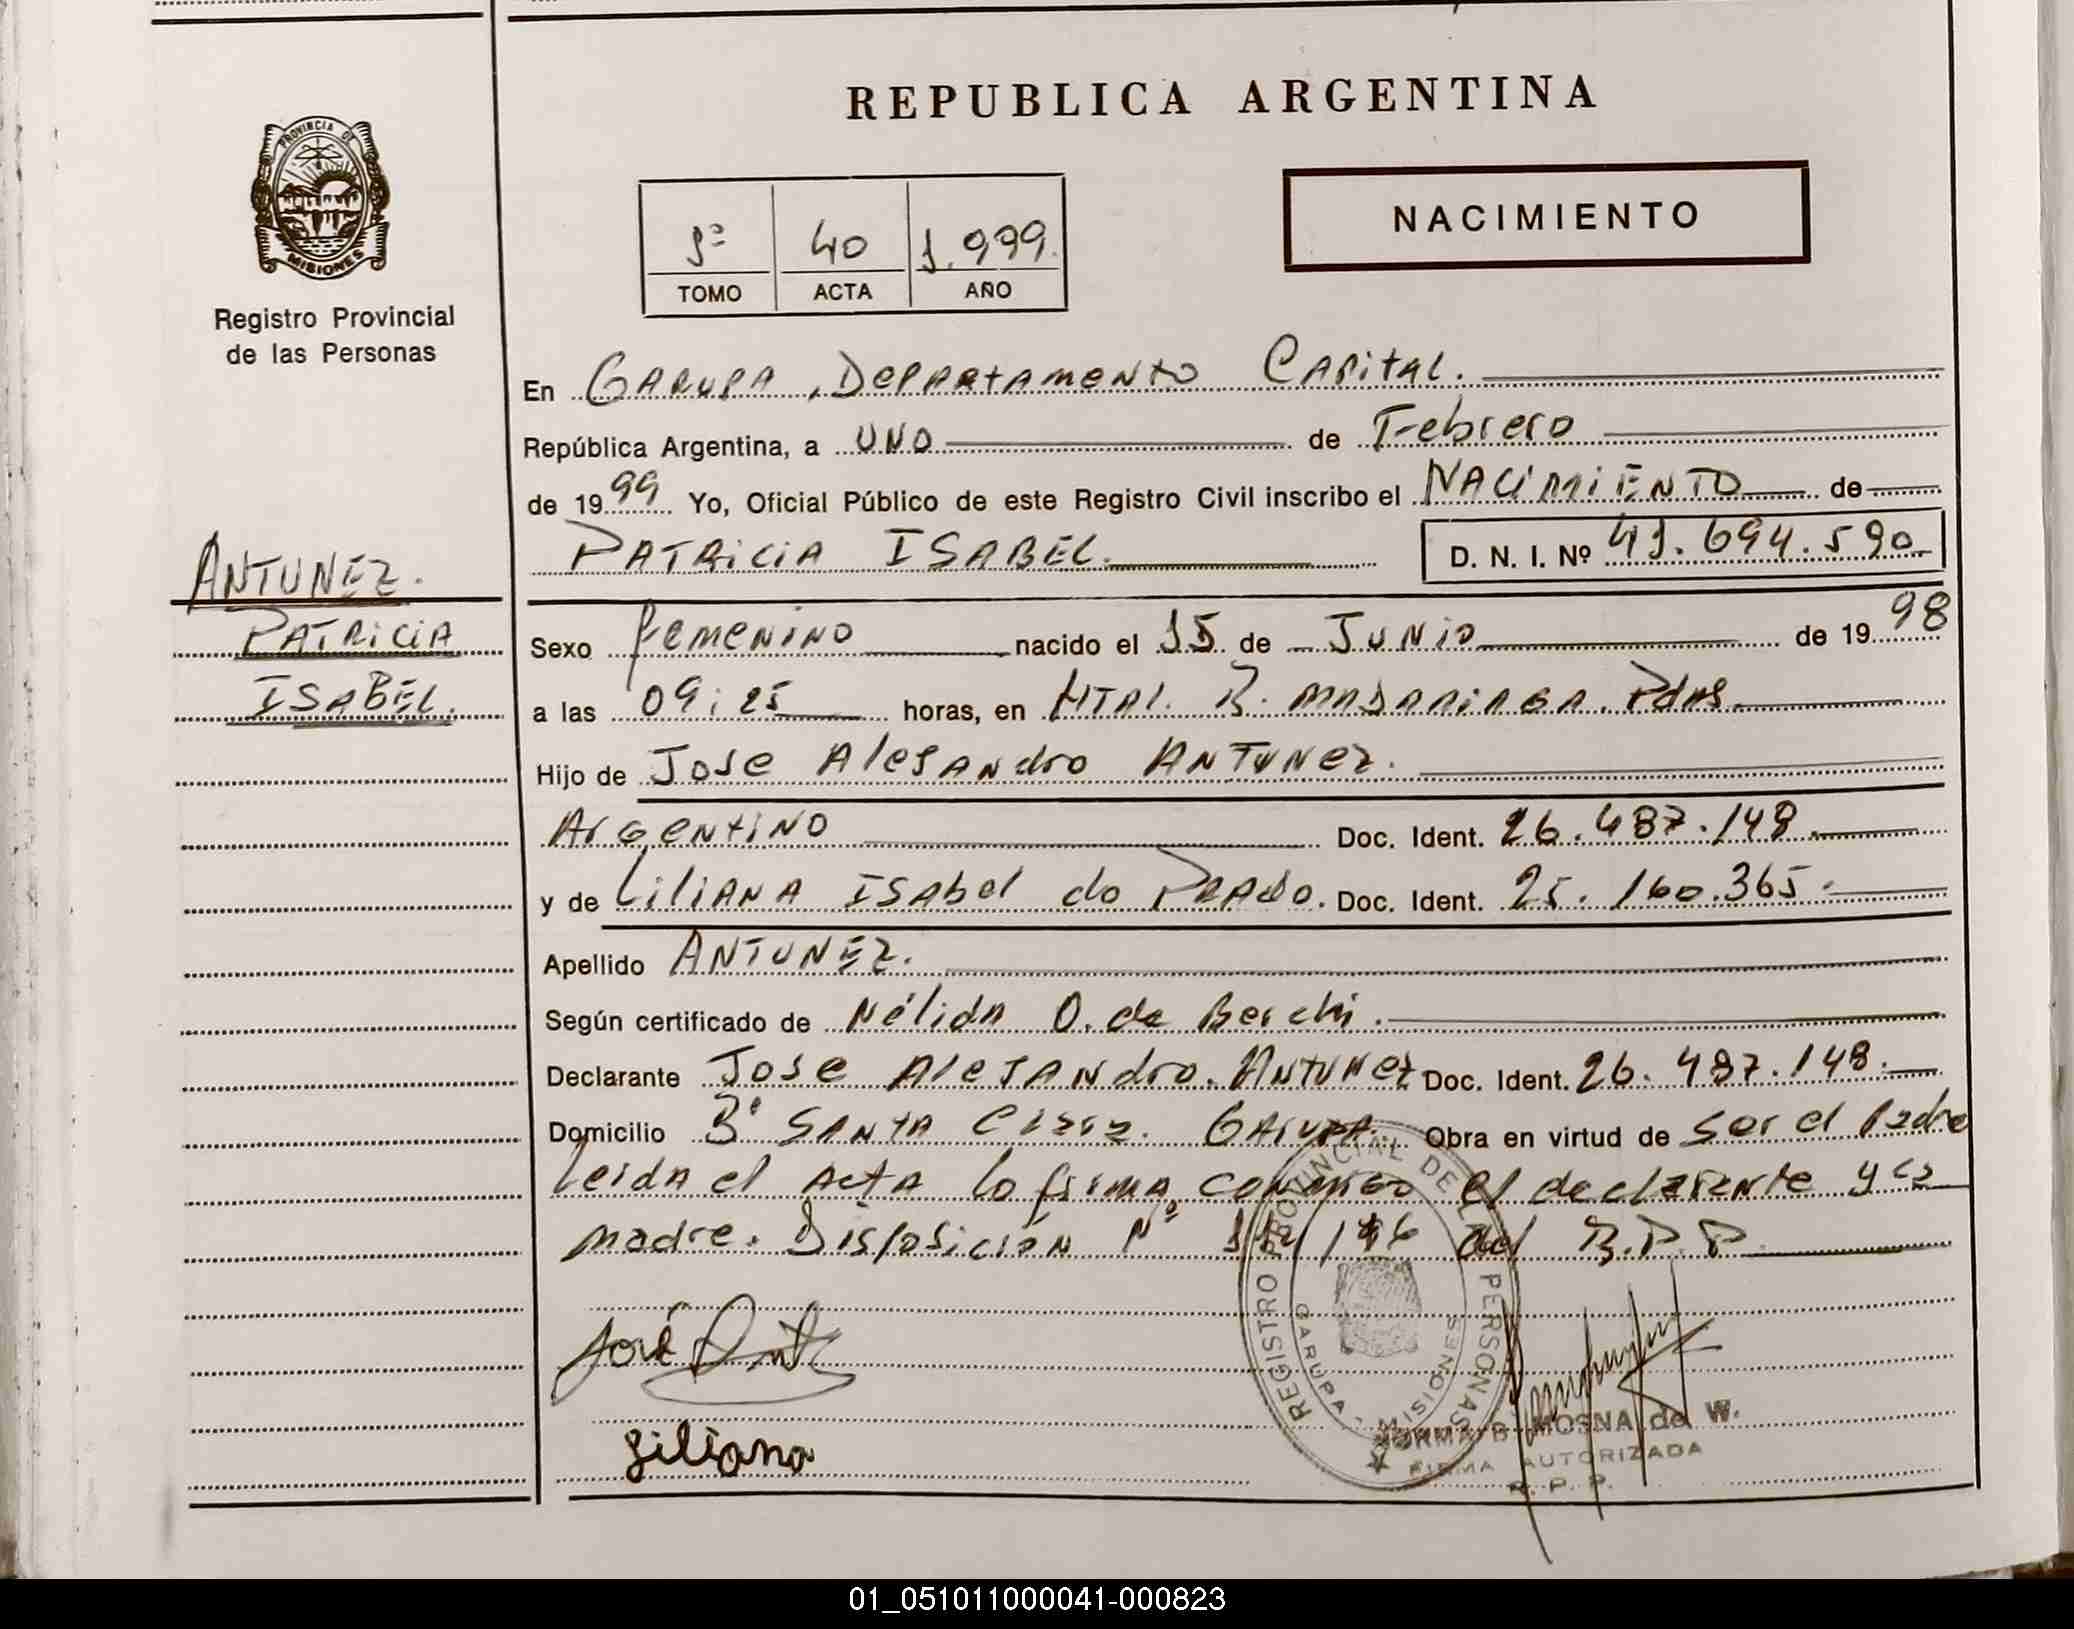 PROVINCIA DE
MISIONES
Registro Provincial
de las Personas
ANTUNEZ.
PATRICIA
ISABEL.
REPUBLICA ARGENTINA
1º 40 1.999.
TOMO ACTA AÑO
NACIMIENTO
En GARUPA, DEPARTAMENTO CAPITAL.
República Argentina, a UNO de Febrero
de 1999 Yo, Oficial Público de este Registro Civil inscribo el NACIMIENTO de
PATRICIA ISABEL. D. N. I. Nº 41.694.590
Sexo femenino nacido el 15 de Junio de 1998
a las 09:25 horas, en HTAL. R. MADARIAGA. Pdas.
Hijo de Jose Alejandro Antunez.
Argentino Doc. Ident. 26.487.148
y de Liliana Isabel do Prado. Doc. Ident. 25.160.365.
Apellido ANTUNEZ.
Según certificado de Nélida O. de Berchi.
Declarante Jose Alejandro. Antunez Doc. Ident. 26.487.148.
Domicilio Bº Santa Garupa. Obra en virtud de ser el Padre
Leida el acta la firma conmigo el declarante y la
madre. Disposición Nº del R.P.P.
José
Liliana
REGISTRO PROVINCIAL DE LAS PERSONAS
GARUPA - MISIONES
NORMA B. MOSNA de W.
FIRMA AUTORIZADA
R. P. P.
01_051011000041-000823